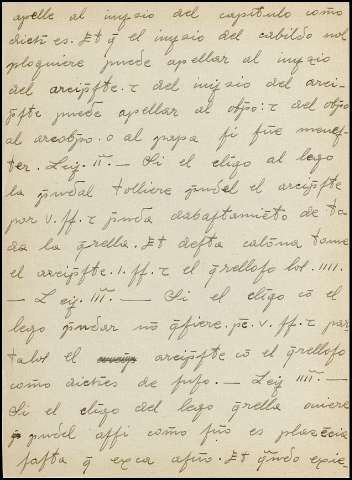 apelle al inyzio del capitulo como
dich̃ es. Et q̃ el inyzio del cabildo nol
ploguiere puede apellar al inyzio
del arcip̃fte. τ del inyzio del arci-
p̃fte puede apellar al ob̃po: τ del ob̃po
al arcob̃po. o al papa fi fue menef-
ter. Ley. II. — Si el cl̃igo al lego
la p̃ndal tolliere p̃ndel el arcip̃fte
por v. ff. τ p̃nda dabaftamiẽto de to-
da la q̃rella. Et defta calon̄a tome
el arcip̃fte. I. ff. τ el q̃rellofo los. IIII.
— Ley. III. — Si el cl̃igo cõ el
lego p̃ndar nõ q̃fiere. pẽ. v. ff. τ par
talos el arcip̃fte cõ el q̃rellofo
como dich̃ es de fufo. — Ley IIII. —
Si el cl̃igo del lego q̃rella ouiere
p̃ndel affi como f̃uo es plazẽcia
fafta q̃ exca afũo. Et q̃ndo exie-